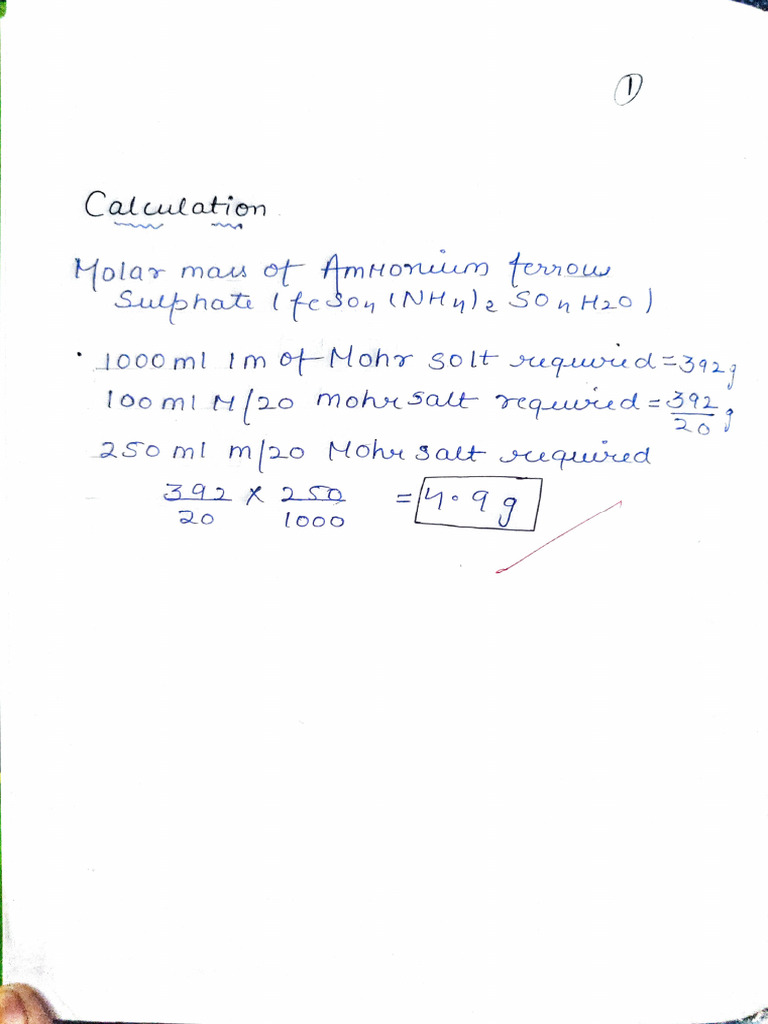 1
Calculation
Molar mass of Ammonium ferrous
Sulphate (feSO4 (NH4)2 SO4 H2O)
1000ml 1m of Mohr solt required = 392g
100ml M/20 mohr salt required = 392/20 g
250 ml m/20 Mohr salt required
392/20 × 250/1000 = 4.9g